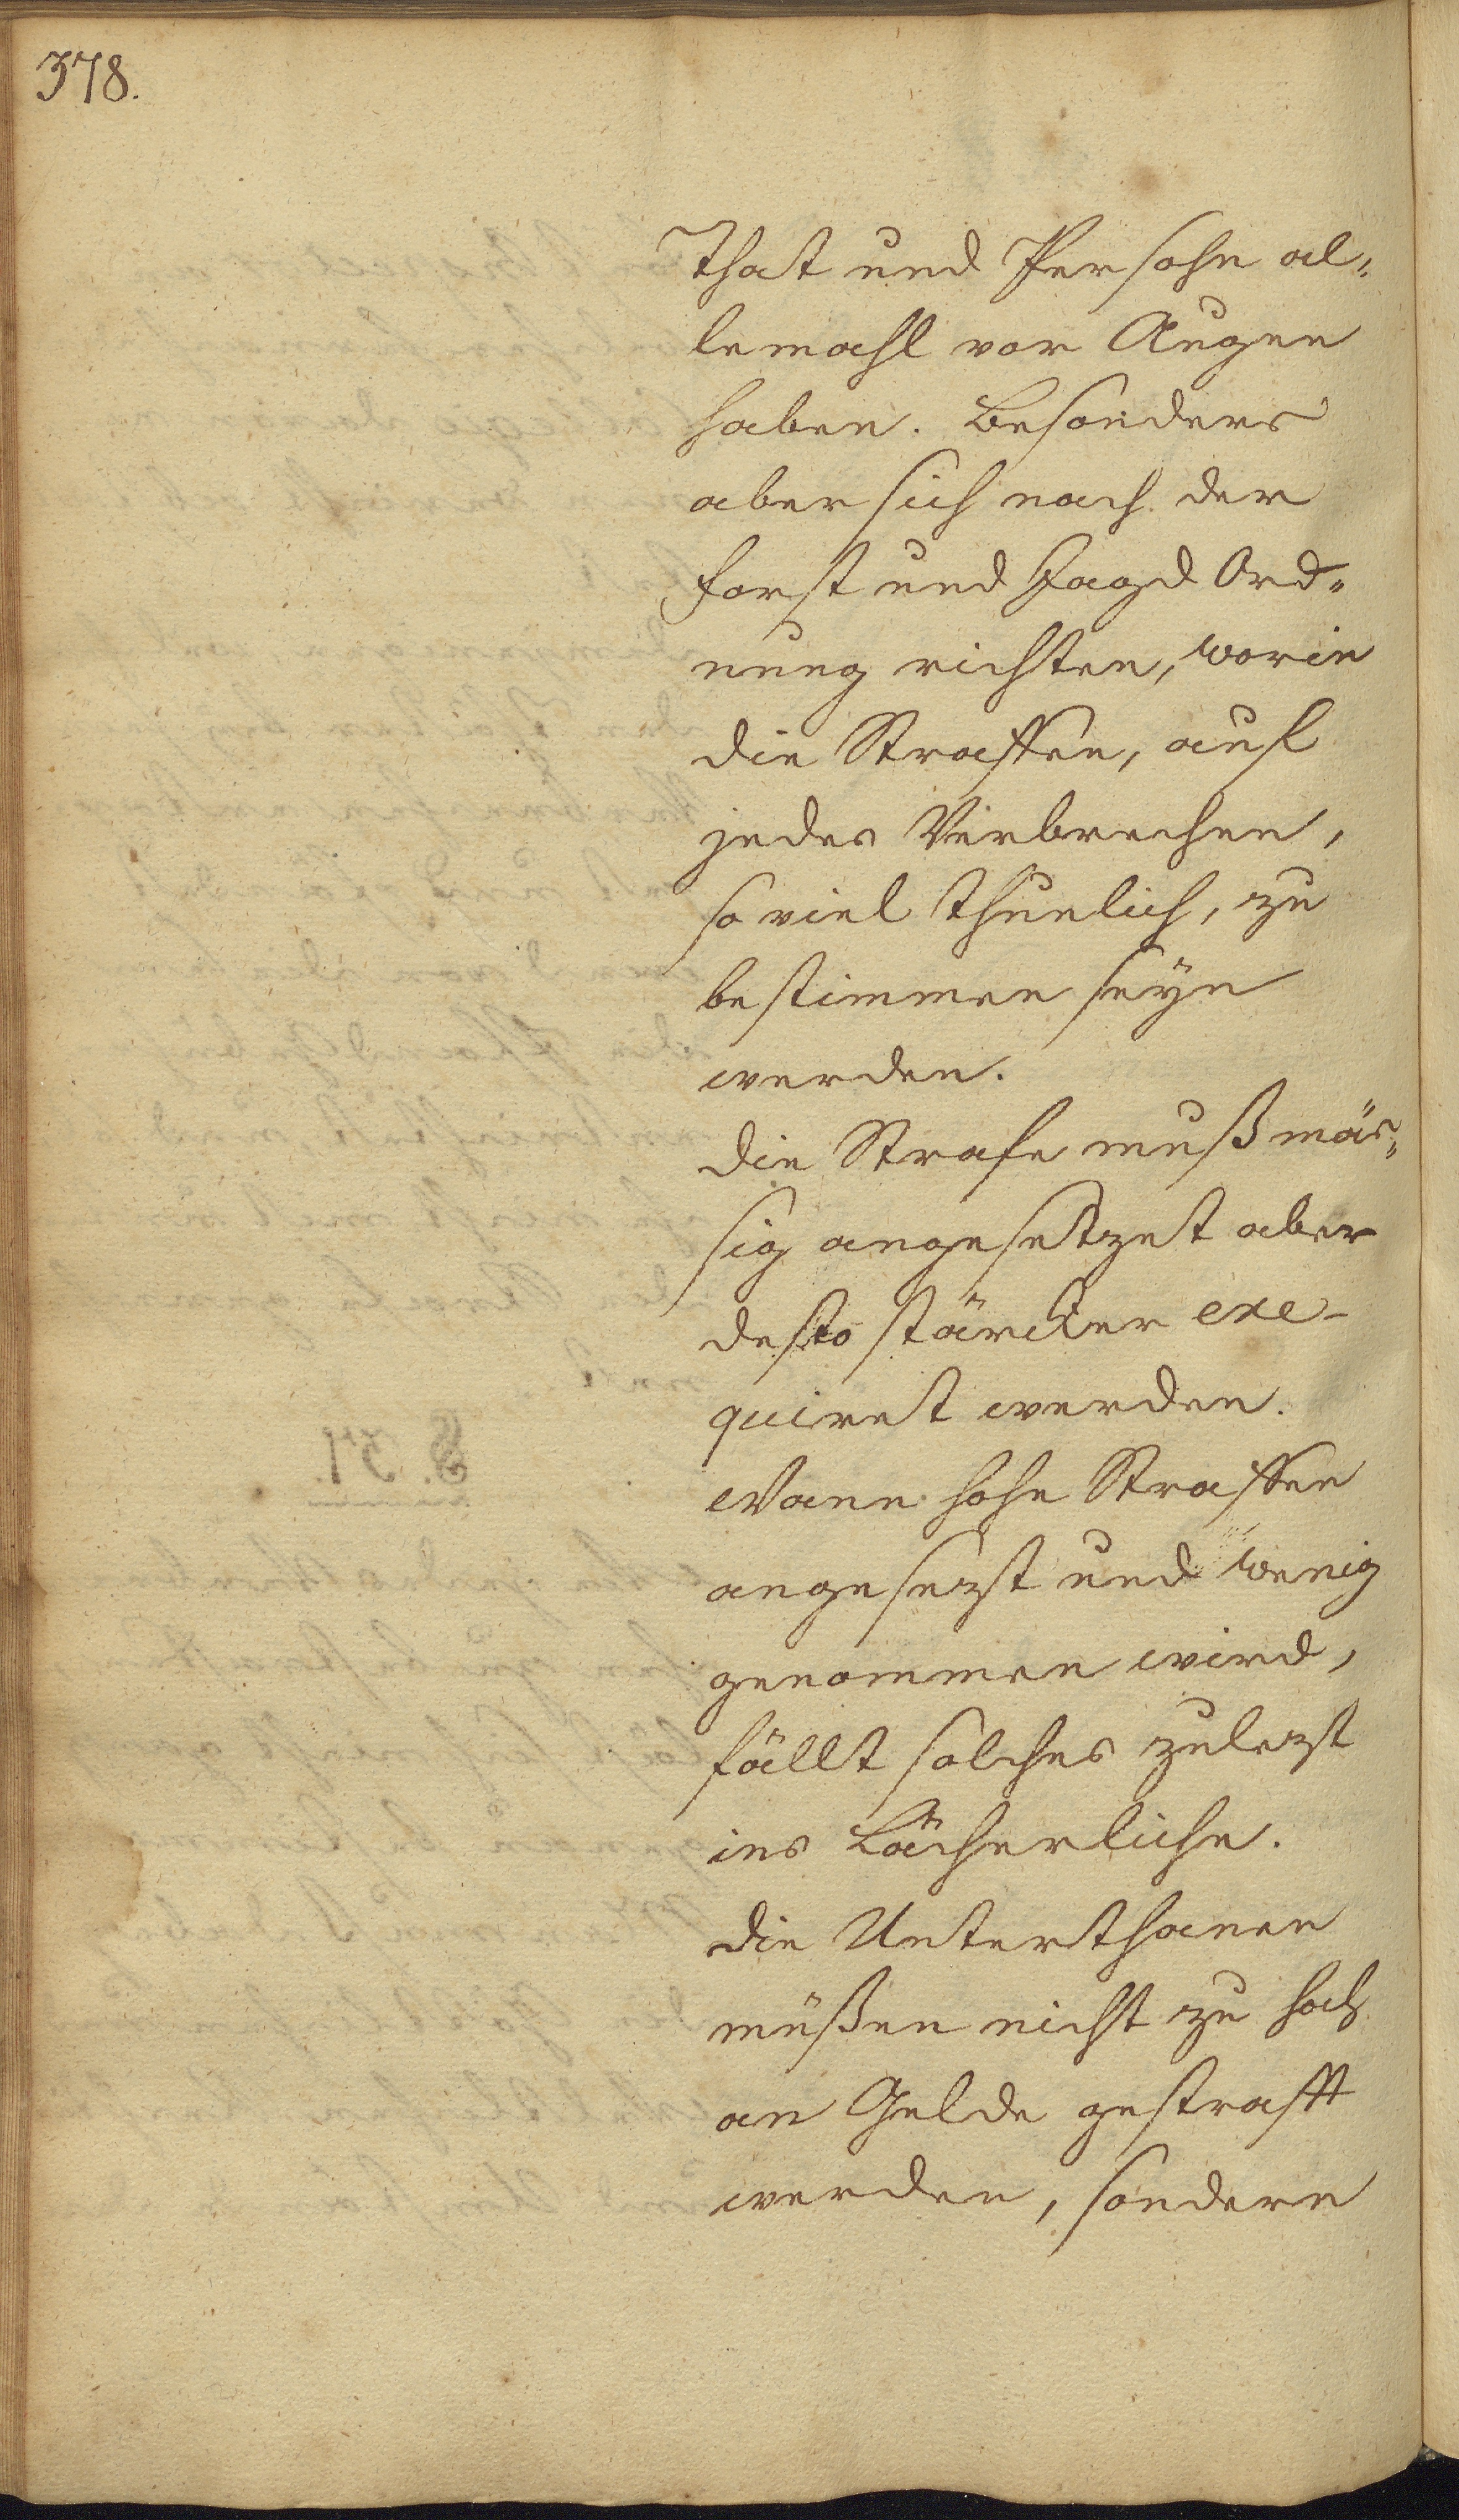 378.
That und Persohn al„
lemahl vor Augen
haben. Besonders
aber sich nach der
Forst und Jagd Ord„
nung richten, worin
die Straffen, auf
jedes Verbrechen,
so viel thunlich, zu
bestimmen seyn
werden.
die Strafe muß mäs„
sig angesetzet aber
desto stärcker exe-
quiret werden.
Wann hohe Straffen
angesezt und wenig
genommen wird,
fällt solches zulezt
ins Lächerliche.
die Unterthanen
müßen nicht zu hoch
an Gelde gestrafft
werden, sondern